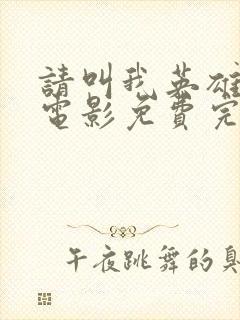 請叫我英雄
電影免費完
午夜跳舞的